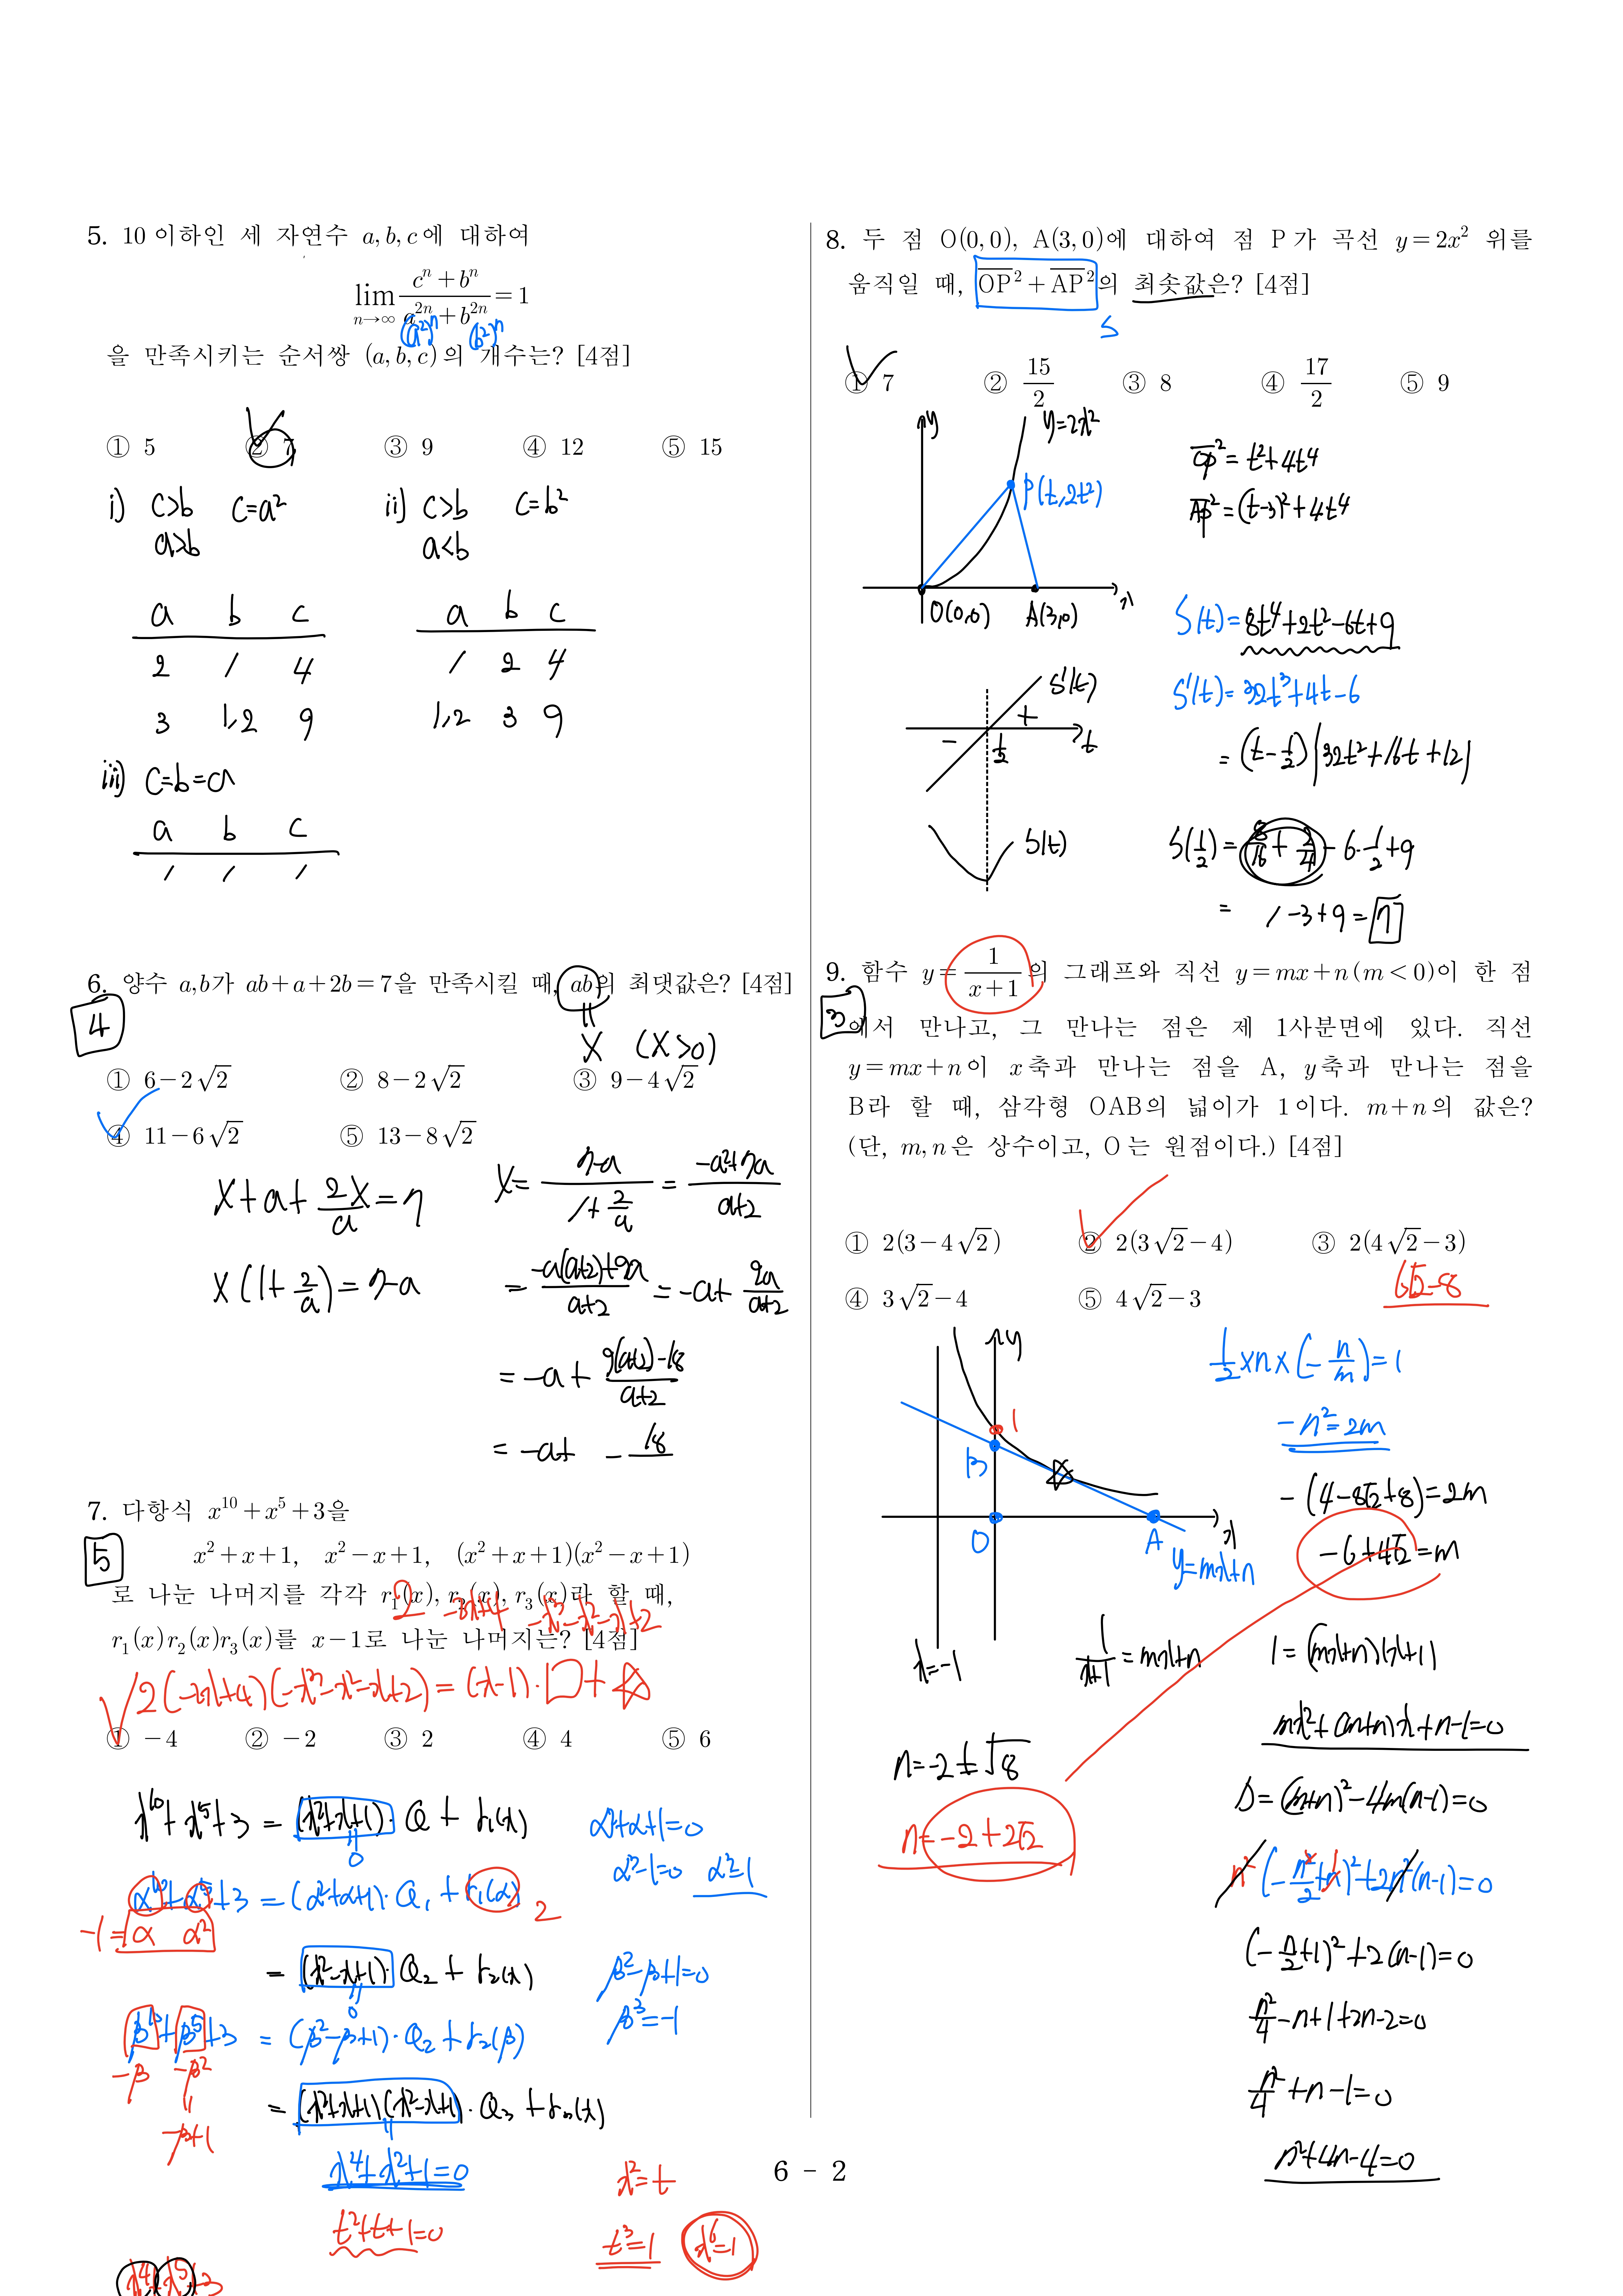 5. 10 이하인 세 자연수 a, b, c에 대하여
lim n→∞ (c^n + b^n)/(a^{2n} + b^{2n}) = 1
(a²)^n (b²)^n
을 만족시키는 순서쌍 (a, b, c)의 개수는? [4점]
① 5 ② 7 ③ 9 ④ 12 ⑤ 15
i) c>b c=a² ii) c>b c=b²
a>b a<b
a b c a b c
2 1 4 1 2 4
3 1,2 9 1,2 3 9
iii) c=b=a
a b c
1 1 1
6. 양수 a, b가 ab+a+2b=7을 만족시킬 때, ab의 최댓값은? [4점]
4
X (X>0)
① 6-2√2 ② 8-2√2 ③ 9-4√2
④ 11-6√2 ⑤ 13-8√2
X+a+2X/a=7 X=(7-a)/(1+2/a)=(-a²+7a)/(a+2)
X(1+2/a)=7-a =(-a(a+2)+9a)/(a+2)=-a+9a/(a+2)
=-a+(9(a+2)-18)/(a+2)
=-a+ -18/
7. 다항식 x^{10}+x^5+3을
5
x²+x+1, x²-x+1, (x²+x+1)(x²-x+1)
로 나눈 나머지를 각각 r₁(x), r₂(x), r₃(x)라 할 때,
2 -2x+4 -x³-x²-x+2
r₁(x)r₂(x)r₃(x)를 x-1로 나눈 나머지는? [4점]
2(-2x+4)(-x³-x²-x+2)=(x-1)·□+☆
① -4 ② -2 ③ 2 ④ 4 ⑤ 6
x^{10}+x^5+3=(x²+x+1)·Q+r₁(x) α²+α+1=0
0 α³-1=0 α³=1
α^{10}+α^5+3=(α²+α+1)·Q₁+r₁(α) 2
-1= α α²
=(x²-x+1)·Q₂+r₂(x) β²-β+1=0
0 β³=-1
β^{10}+β^5+3=(β²-β+1)·Q₂+r₂(β)
-β -β²
-β+1
=(x²+x+1)(x²-x+1)·Q₃+r₃(x)
x⁴+x²+1=0 x²=t
t²+t+1=0 t³=1 x⁶=1
x⁴+x⁵+3
8. 두 점 O(0, 0), A(3, 0)에 대하여 점 P가 곡선 y=2x² 위를
움직일 때, OP²+AP²의 최솟값은? [4점]
S
① 7 ② 15/2 ③ 8 ④ 17/2 ⑤ 9
y y=2x² OP²=t²+4t⁴
P(t,2t²) AP²=(t-3)²+4t⁴
O(0,0) A(3,0) x
S(t)=8t⁴+2t²-6t+9
S'(t) S'(t)=32t³+4t-6
- + 1/2 t =(t-1/2)(32t²+16t+12)
S(t) S(1/2)=8/16+2/4-6·1/2+9
= 1-3+9=7
9. 함수 y=1/(x+1)의 그래프와 직선 y=mx+n(m<0)이 한 점
3
에서 만나고, 그 만나는 점은 제 1사분면에 있다. 직선
y=mx+n이 x축과 만나는 점을 A, y축과 만나는 점을
B라 할 때, 삼각형 OAB의 넓이가 1이다. m+n의 값은?
(단, m, n은 상수이고, O는 원점이다.) [4점]
① 2(3-4√2) ② 2(3√2-4) ③ 2(4√2-3)
6√2-8
④ 3√2-4 ⑤ 4√2-3
y 1/2×n×(-n/m)=1
1 -n²=2m
B -(4-8√2+8)=2m
O A x -6+4√2=m
y=mx+n
x=-1 1/(x+1)=mx+n 1=(mx+n)(x+1)
mx²+(m+n)x+n-1=0
n=-2±√8 D=(m+n)²-4m(n-1)=0
n=-2+2√2 n²(-n²/2+n)²+2n²(n-1)=0
(-n/2+1)²+2(n-1)=0
n²/4-n+1+2n-2=0
n²/4+n-1=0
n²+4n-4=0
6 - 2